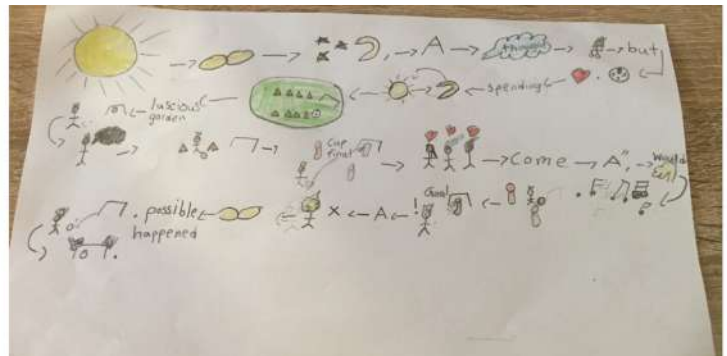 , A but
. spending
luscious
garden
Cup
final
Come A", Would
Goal
! A X
possible
happened
.